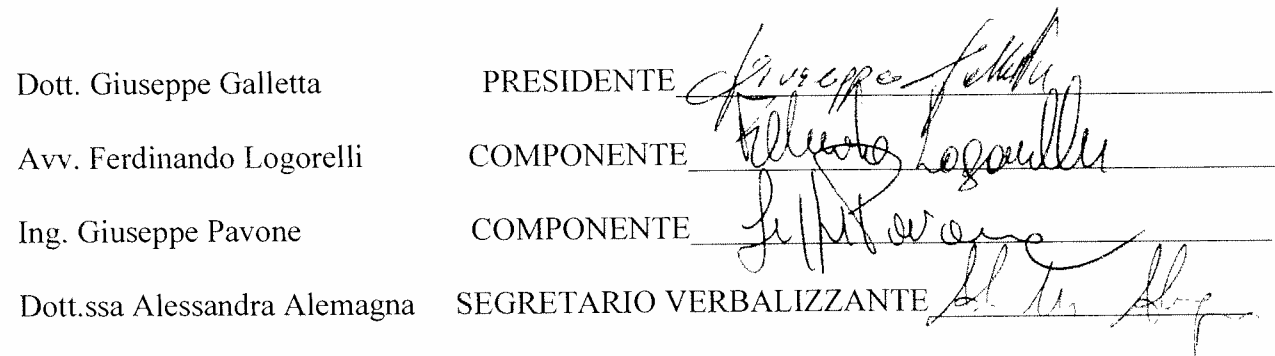 Dott. Giuseppe Galletta PRESIDENTE Giuseppe Galletta
Avv. Ferdinando Logorelli COMPONENTE Logorelli
Ing. Giuseppe Pavone COMPONENTE Pavone
Dott.ssa Alessandra Alemagna SEGRETARIO VERBALIZZANTE